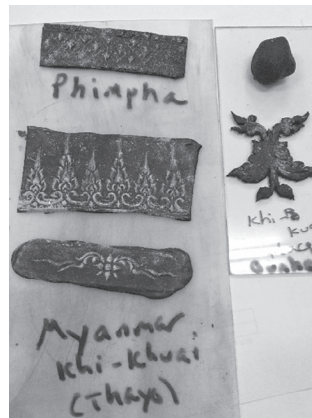 Phimpha
Myanmar
Khi-Khuai
(Thayo)
Khi-